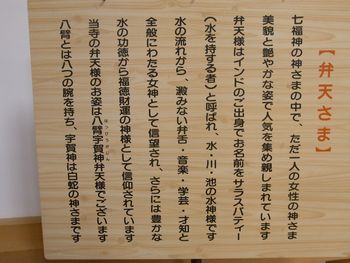 【弁天さま】
七福神の神さまの中で、ただ一人の女性の神さま
美貌と艶やかな姿で人気を集め親しまれています
弁天様はインドのご出身でお名前をサラスバティー
(水を持する者)と呼ばれ、水・川・池の水神様です
水の流れから、澱みない弁舌・音楽・学芸・才知と
全般にわたる女神として信望され、さらには豊かな
水の功徳から福徳財運の神様として信仰されています
当寺の弁天様のお姿は八臂宇賀神弁天様でございます
八臂とは八つの腕を持ち、宇賀神は白蛇の神さまです